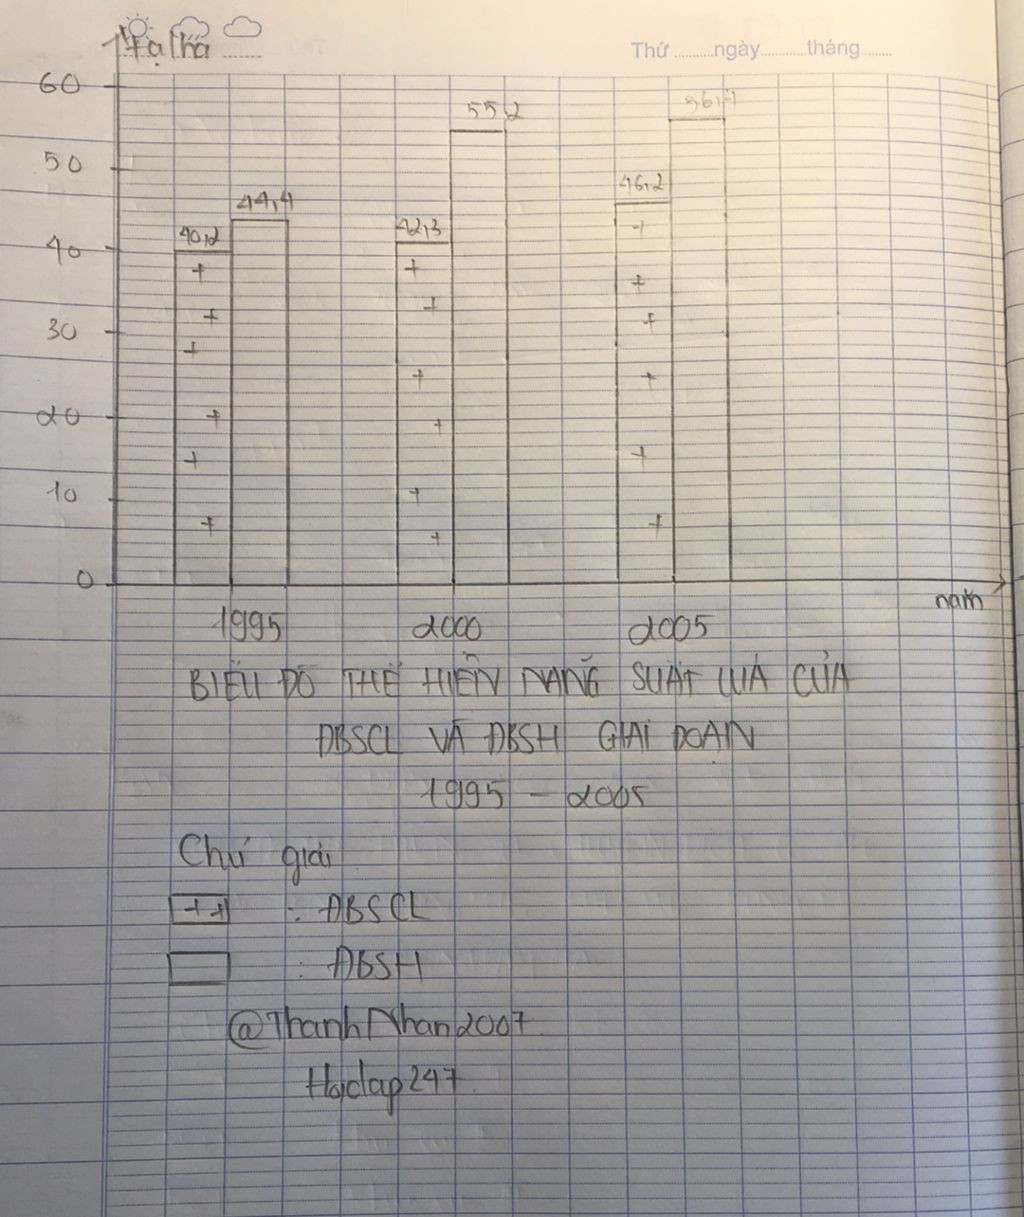 Tạ/ha
Thứ ........ngày.........tháng......
60
50
40
30
20
10
0
40,2
44,4
42,3
55,2
46,2
1995
2000
2005
năm
BIỂU ĐỒ THỂ HIỆN NĂNG SUẤT LÚA CỦA
ĐBSCL VÀ ĐBSH GIAI ĐOẠN
1995 - 2005
Chú giải
: ĐBSCL
: ĐBSH
@ThanhNhan2007
Hoidap247